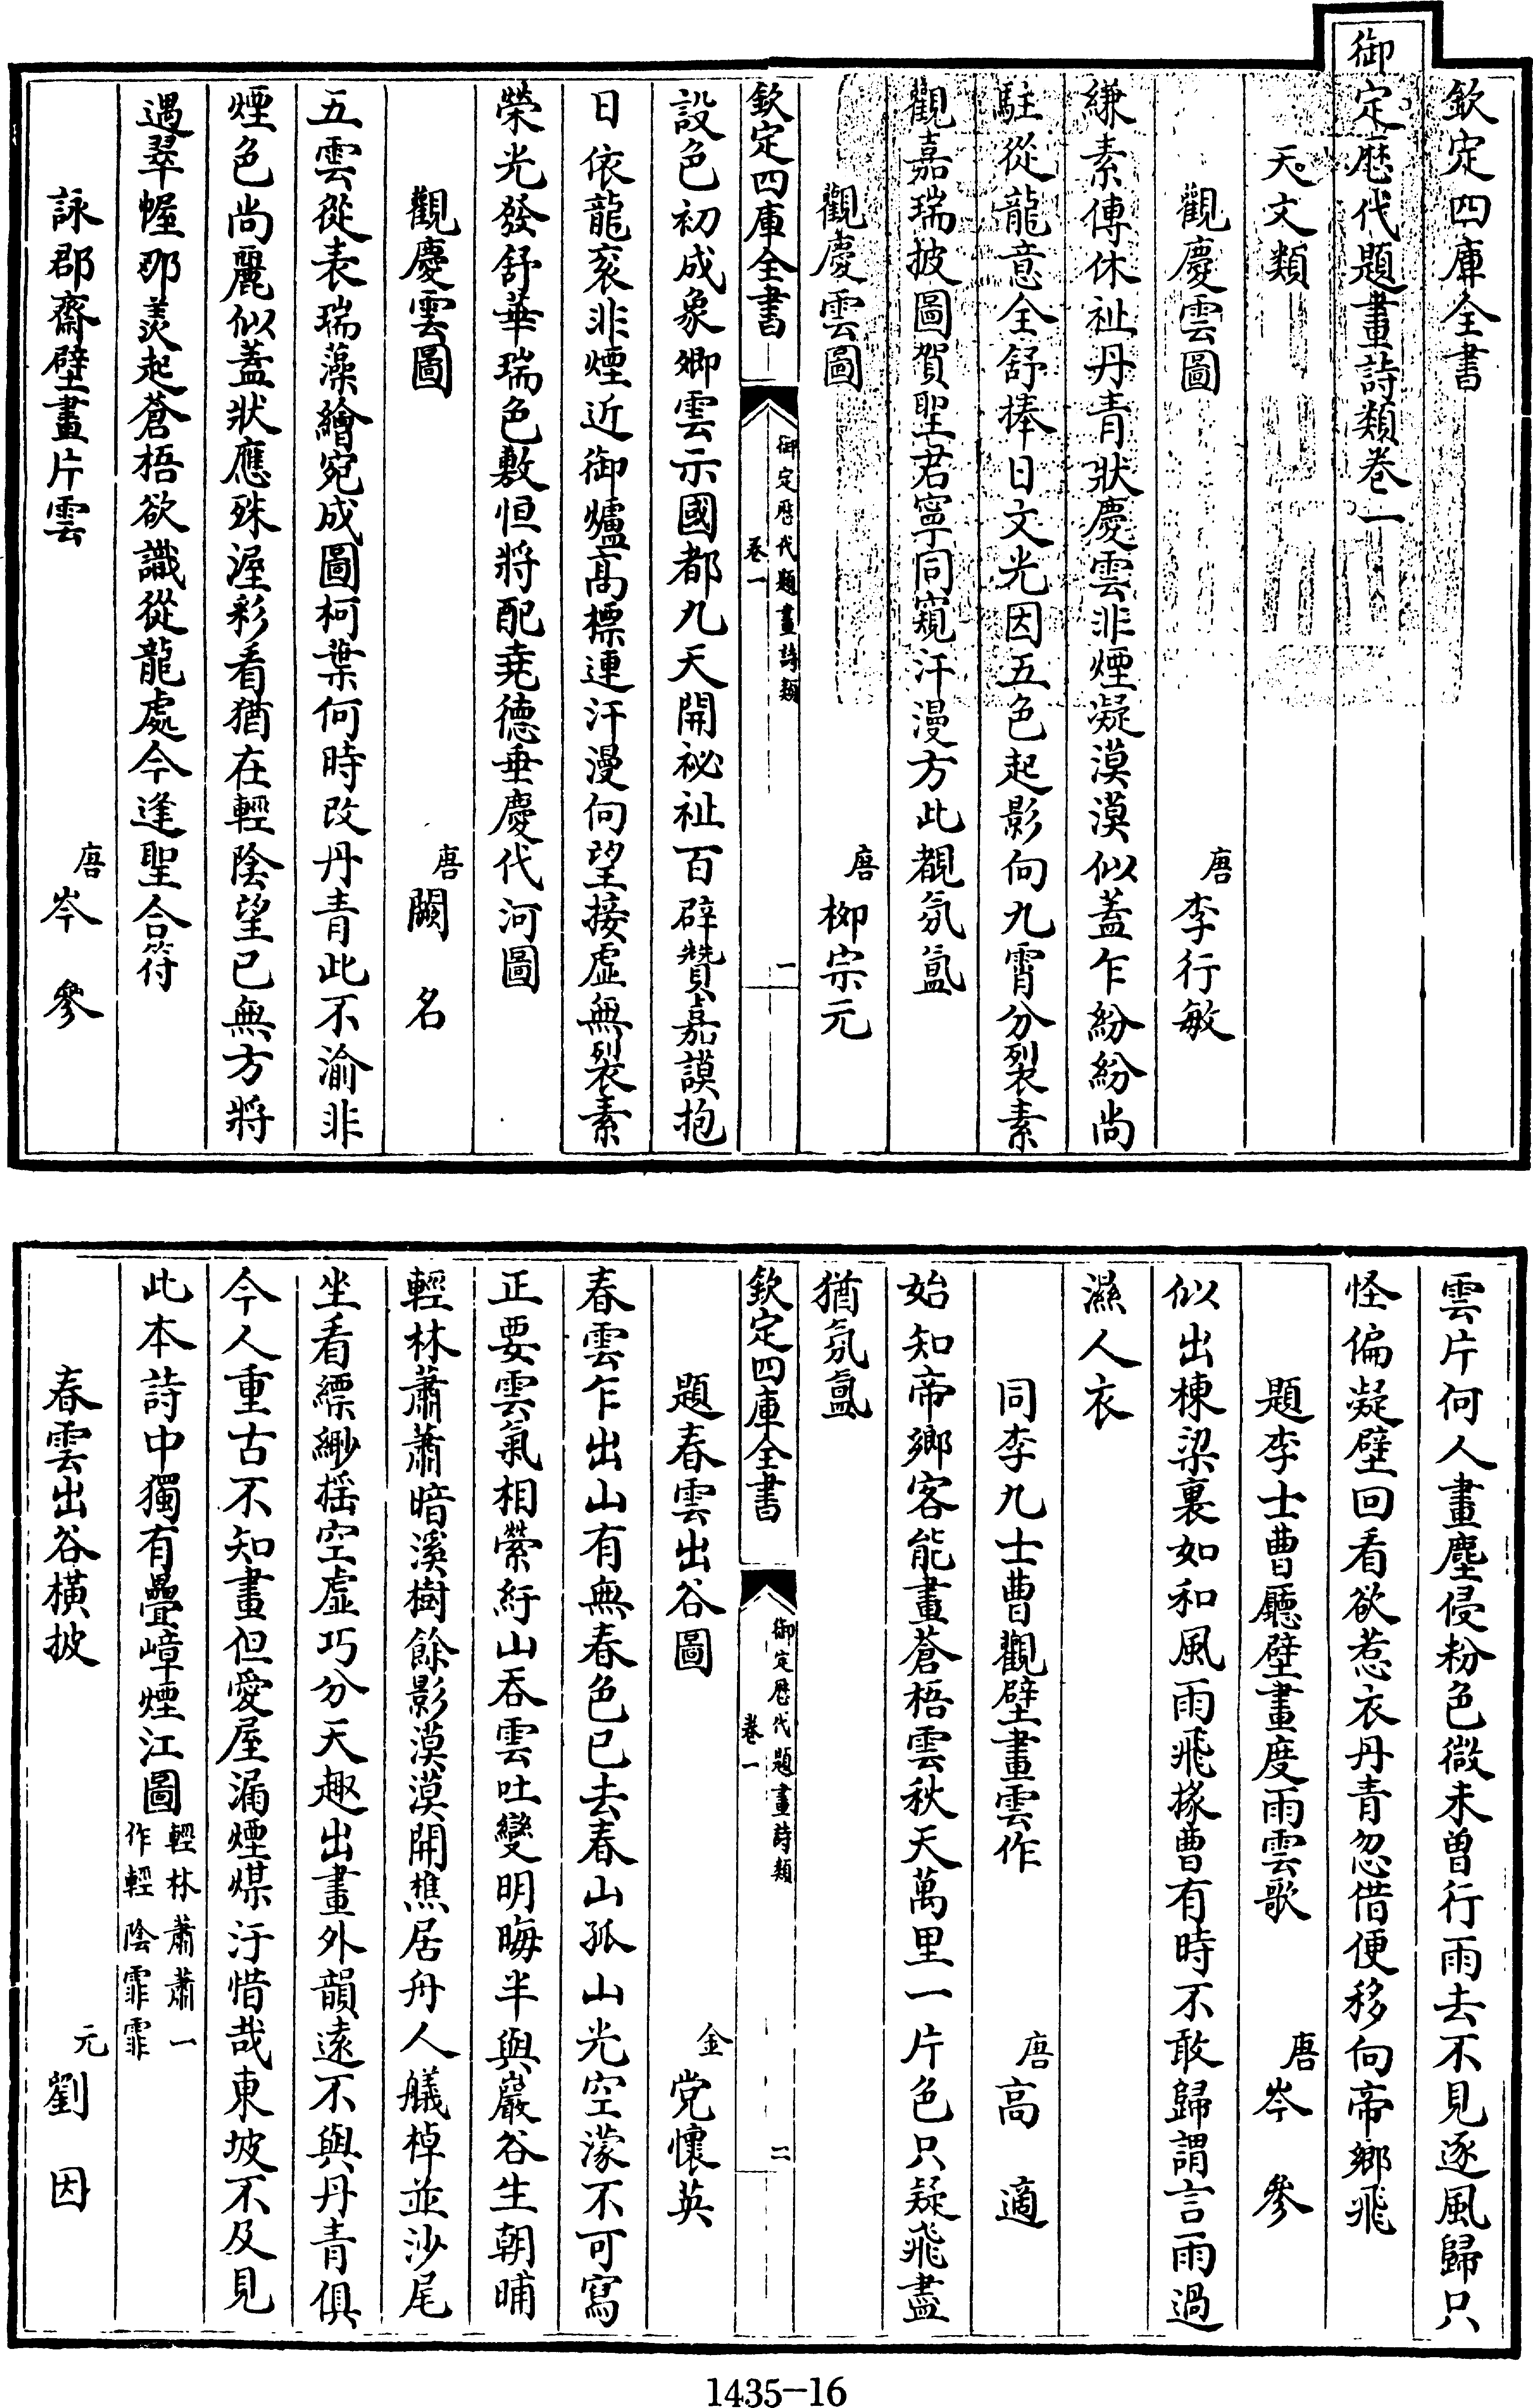 欽定四庫全書
御定歷代題畫詩類卷一
天文類
觀慶雲圖 唐 李行敏
縑素傳休祉丹青狀慶雲非煙凝漠漠似蓋乍紛紛尚
駐從龍意全舒捧日文光因五色起影向九霄分裂素
觀嘉瑞披圖賀聖君寧同窺汗漫方此覩氛氲
觀慶雲圖 唐 柳宗元
欽定四庫全書
御定歷代題畫詩類
卷一
一
設色初成象卿雲示國都九天開祕祉百辟贊嘉謨抱
日依龍衮非煙近御爐高標連汗漫向望接虛無裂素
榮光發舒華瑞色敷恒將配堯德垂慶代河圖
觀慶雲圖 唐 闕名
五雲從表瑞藻繪宛成圖柯葉何時改丹青此不渝非
煙色尚麗似蓋狀應殊渥彩看猶在輕陰望已無方將
遇翠幄那羨起蒼梧欲識從龍處今逢聖合符
詠郡齋壁畫片雲 唐 岑參
雲片何人畫塵侵粉色微未曾行雨去不見逐風歸只
怪偏凝壁回看欲惹衣丹青忽借便移向帝鄉飛
題李士曹廳壁畫度雨雲歌 唐 岑參
似出棟梁裏如和風雨飛掾曹有時不敢歸謂言雨過
濕人衣
同李九士曹觀壁畫雲作 唐 高適
始知帝鄉客能畫蒼梧雲秋天萬里一片色只疑飛盡
猶氛氲
欽定四庫全書
御定歷代題畫詩類
卷一
二
題春雲出谷圖 金 党懷英
春雲乍出山有無春色已去春山孤山光空濛不可寫
正要雲氣相縈紆山吞雲吐變明晦半與巖谷生朝晡
輕林蕭蕭暗溪樹餘影漠漠開樵居舟人艤棹並沙尾
坐看縹緲揺空虛巧分天趣出畫外韻遠不與丹青俱
今人重古不知畫但愛屋漏煙煤汙惜哉東坡不及見
此本詩中獨有疊嶂煙江圖 輕林蕭蕭一作輕陰霏霏
春雲出谷橫披 元 劉因
1435-16